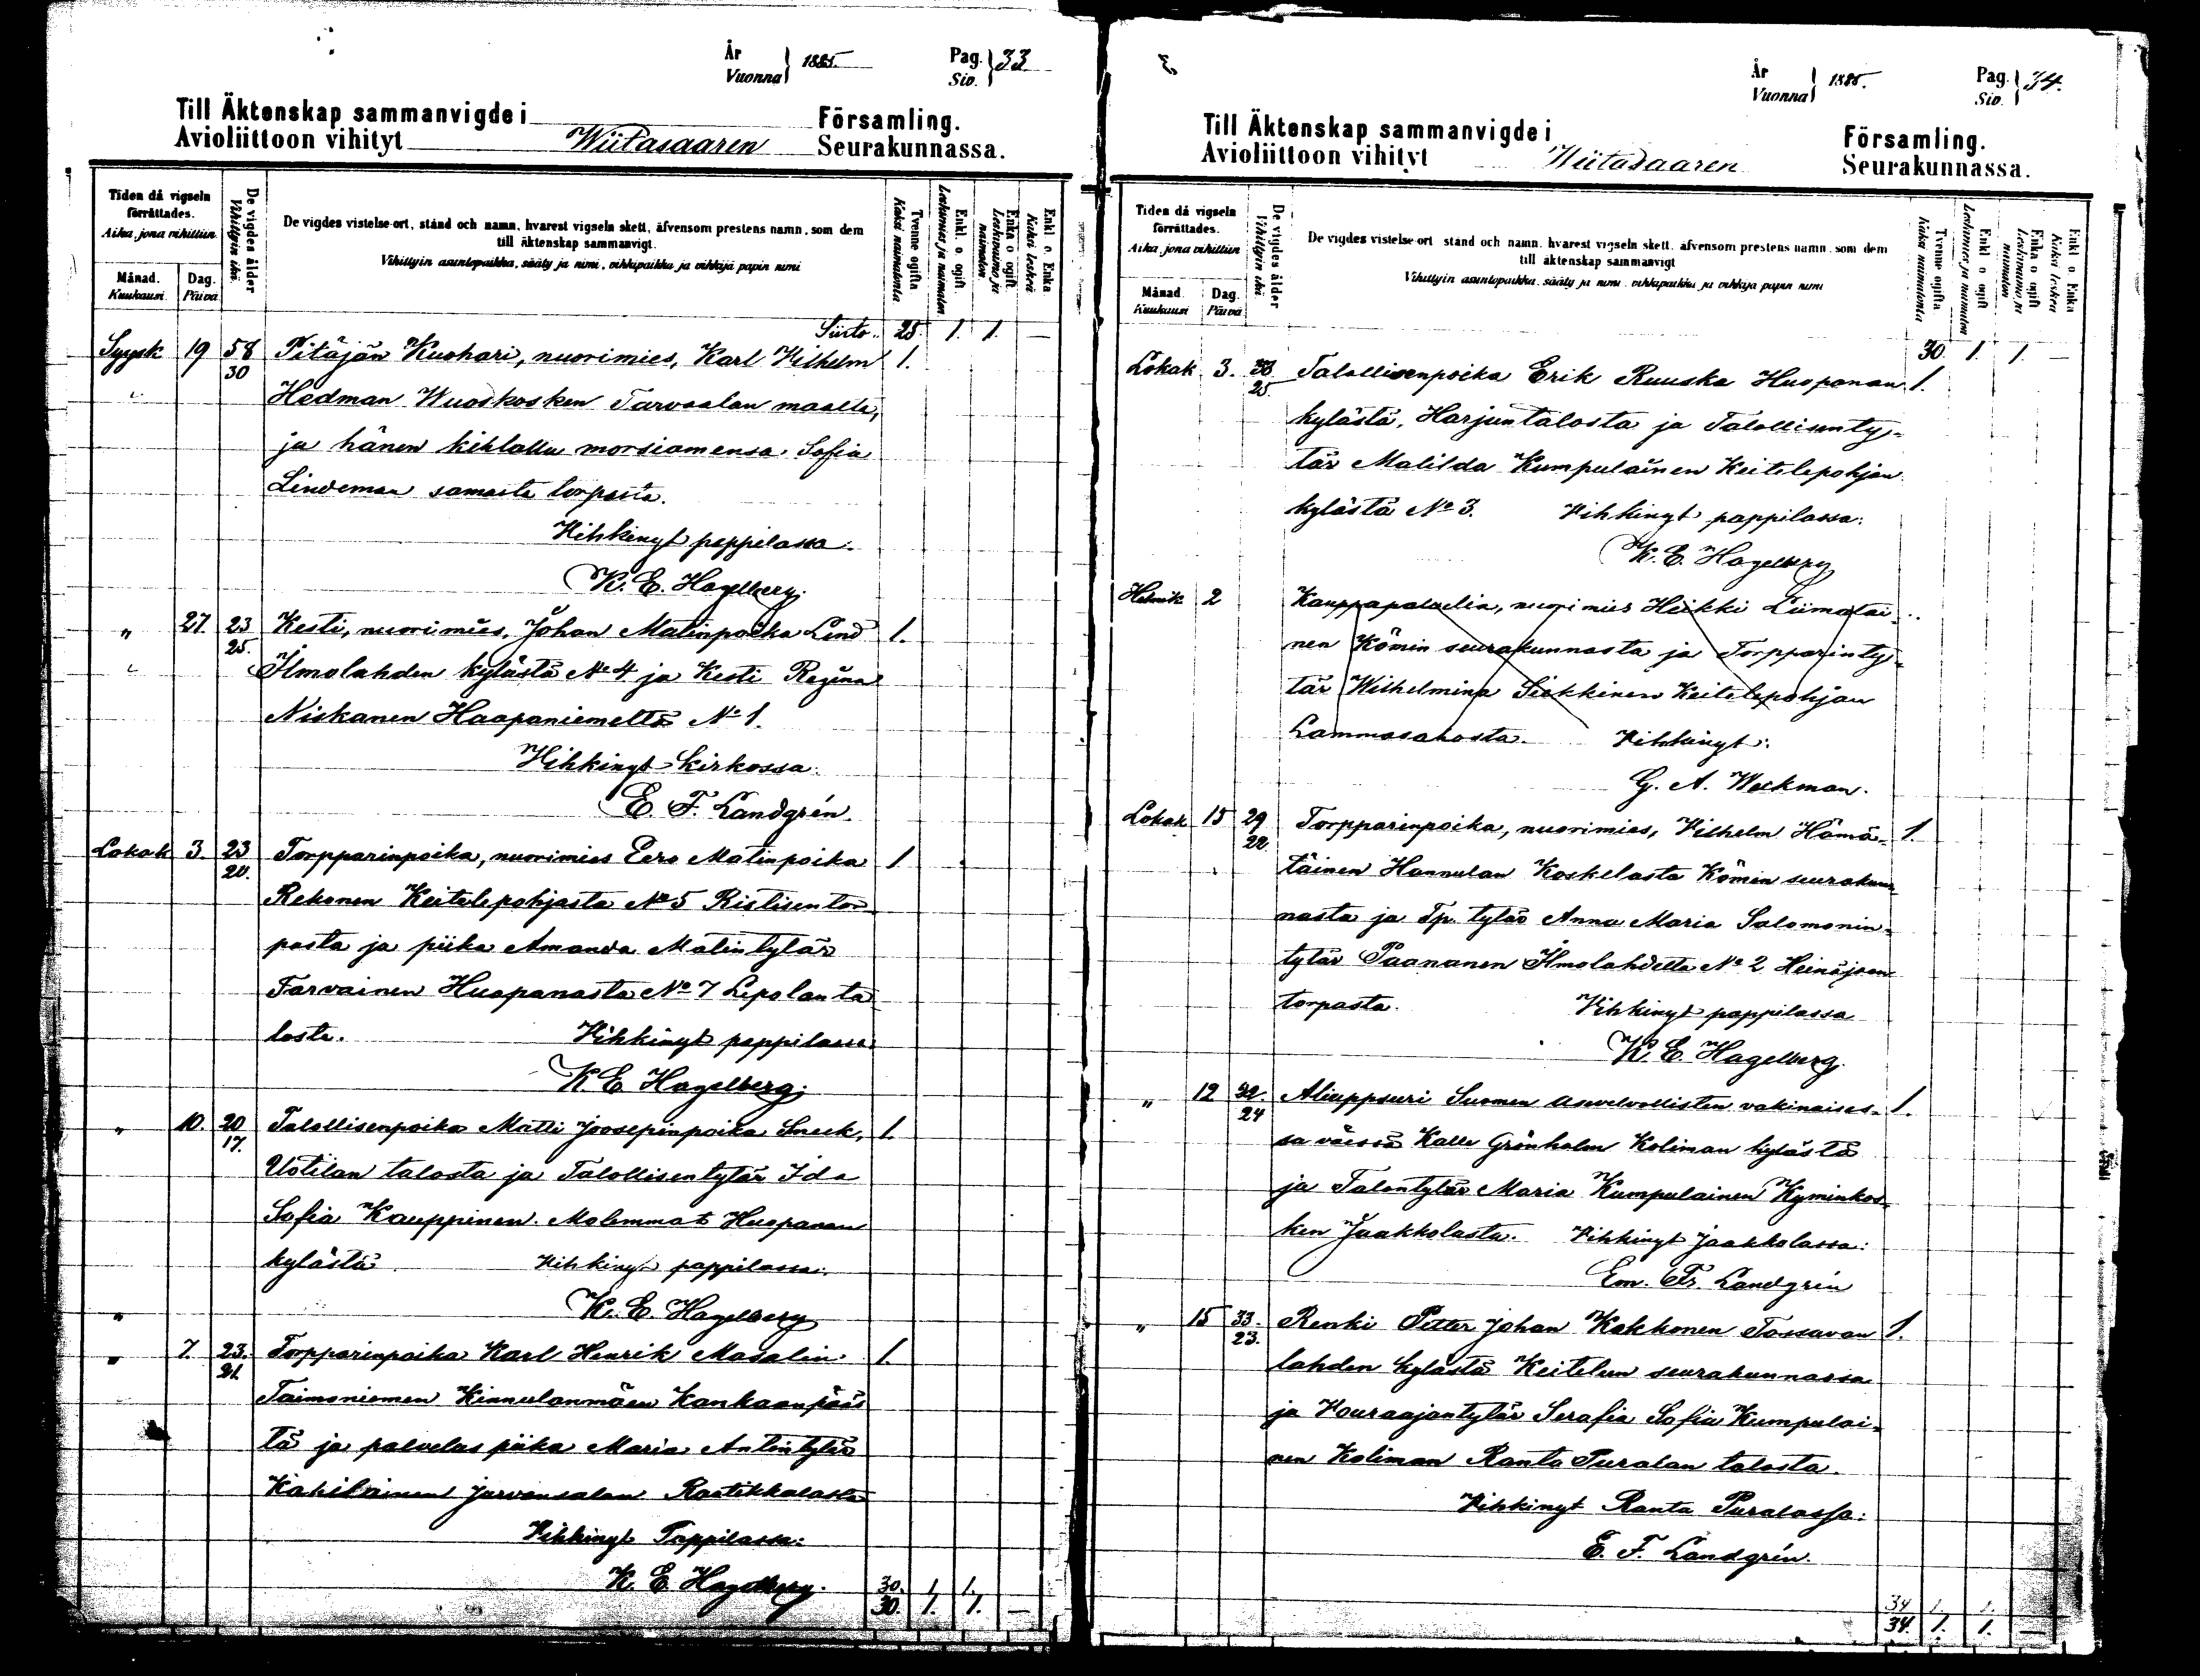 År
Vuonna 1885.
Pag.
Siv. 33
Till Äktenskap sammanvigde i Församling.
Avioliittoon vihityt Wiitasaaren Seurakunnassa.
Tiden då vigseln förrättades.
Aika, jona vihittiin.
Månad. Kuukausi.
Dag. Päivä
De vigdes ålder
Vihittyin ikä.
De vigdes vistelse-ort, stånd och namn, hvarest vigseln skett, äfvensom prestens namn, som dem
till äktenskap sammanvigt.
Vihittyin asuntopaikka, sääty ja nimi, vihkipaikka ja vihkijä papin nimi
Tvenne ogifta
Kaksi naimatonta
Enkl. o. ogift.
Leskimies ja naimaton
Enka o ogift.
Leskivaimo ja naimaton
Enkl. o. Enka
Kaksi leskeä
Siirto. 25. 1. 1. —
Syysk 19 58 Pitäjän Kuohari, nuorimies, Karl Vilhelm 1.
30
Hedman Wuoskosken Tarvaalan maalta,
ja hänen kihlattu morsiamensa Sofia
Lindeman samasta torpasta.
Vihkinyt pappilassa:
K. E. Hagelberg.
" 27. 23 Kesti, nuorimies, Johan Matinpoika Lind 1.
25.
Ilmolahden kylästä No 4 ja Kesti Regina
Niskanen Haapaniemeltä No 1.
Vihkinyt kirkossa:
E. F. Landgrén.
Lokak 3. 23 Torpparinpoika, nuorimies Eero Matinpoika 1
20.
Rekonen Keitelepohjasta No 5 Ristisentor
pasta ja piika Amanda Matintytär
Tarvainen Huopanasta No 7 Lepolan ta
losta. Vihkinyt pappilassa
K. E. Hagelberg.
" 10. 20 Talollisenpoika Matti Joosepinpoika Sneck, 1.
17.
Uotilan talosta ja Talollisentytär Ida
Sofia Kauppinen. Molemmat Huopanan
kylästä. Vihkinyt pappilassa:
" K. E. Hagelberg
" 7. 23. Torpparinpoika Karl Henrik Masalin 1.
21.
Taimoniemen Kinnulanmäen Kankaanpääs
tä ja palvelus piika Maria Antintytär
Kahiläinen Jarvensalan Raatikkalasta
Vihkinyt Pappilassa:
K. E. Hagelberg.
30. 1. 1.
30. 1. 1. —
År
Vuonna 1885.
Pag.
Siv. 34.
Till Äktenskap sammanvigde i Församling.
Avioliittoon vihityt Wiitasaaren Seurakunnassa.
Tiden då vigseln förrättades.
Aika, jona vihittiin
Månad. Kuukausi
Dag. Päivä
De vigdes ålder
Vihittyin ikä.
De vigdes vistelse-ort stånd och namn, hvarest vigseln skett, äfvensom prestens namn, som dem
till äktenskap sammanvigt
Vihittyin asuntopaikka, sääty ja nimi, vihkipaikka ja vihkijä papin nimi
Tvenne ogifta
Kaksi naimatonta
Enkl o ogift
Leskimies ja naimaton
Enka o ogift
Leskivaimo ja naimaton
Enkl o. Enka
Kaksi leskeä
30. 1. 1. —
Lokak 3. 38 Talollisenpoika Erik Ruuska Huopanan 1.
25.
kylästä, Harjuntalosta ja Talollisenty-
tär Matilda Kumpulainen Keitelepohjan
kylästä No 3. Vihkinyt pappilassa:
K. E. Hagelberg
Helmik 2 Kauppapalvelia, nuorimies Heikki Liimatai-
nen Kömin seurakunnasta ja Torpparinty-
tär Wilhelmina Siekkinen Keitelepohjan
Lammasahosta. Vihkinyt:
G. A. Weckman.
Lokak 15 29 Torpparinpoika, nuorimies, Vilhelm Hämä- 1.
22.
täinen Hannulan Koskelasta Kömin seurakun
nasta ja Tp. tytär Anna Maria Salomonin-
tytär Paananen Ilmolahdelta No 2 Heinäjoen
torpasta. Vihkinyt pappilassa
K. E. Hagelberg.
" 12 32. Aliuppseeri Suomen asevelvollisten vakinaises- 1.
24
sa väessä Kalle Grönholm Koliman kylästä
ja Talontytär Maria Kumpulainen Kyminkos-
ken Jaakkolasta. Vihkinyt Jaakkolassa:
Em. Fr. Landgrén
" 15 33. Renki Petter Johan Kokkonen Tossavan 1.
23.
lahden kylästä Keitelen seurakunnassa
ja Vouraajantytär Serafia Sofia Kumpulai-
nen Koliman Ranta Puralan talosta.
Vihkinyt Ranta Puralassa:
E. F. Landgrén.
34 1. 1.
34. 1. 1. —